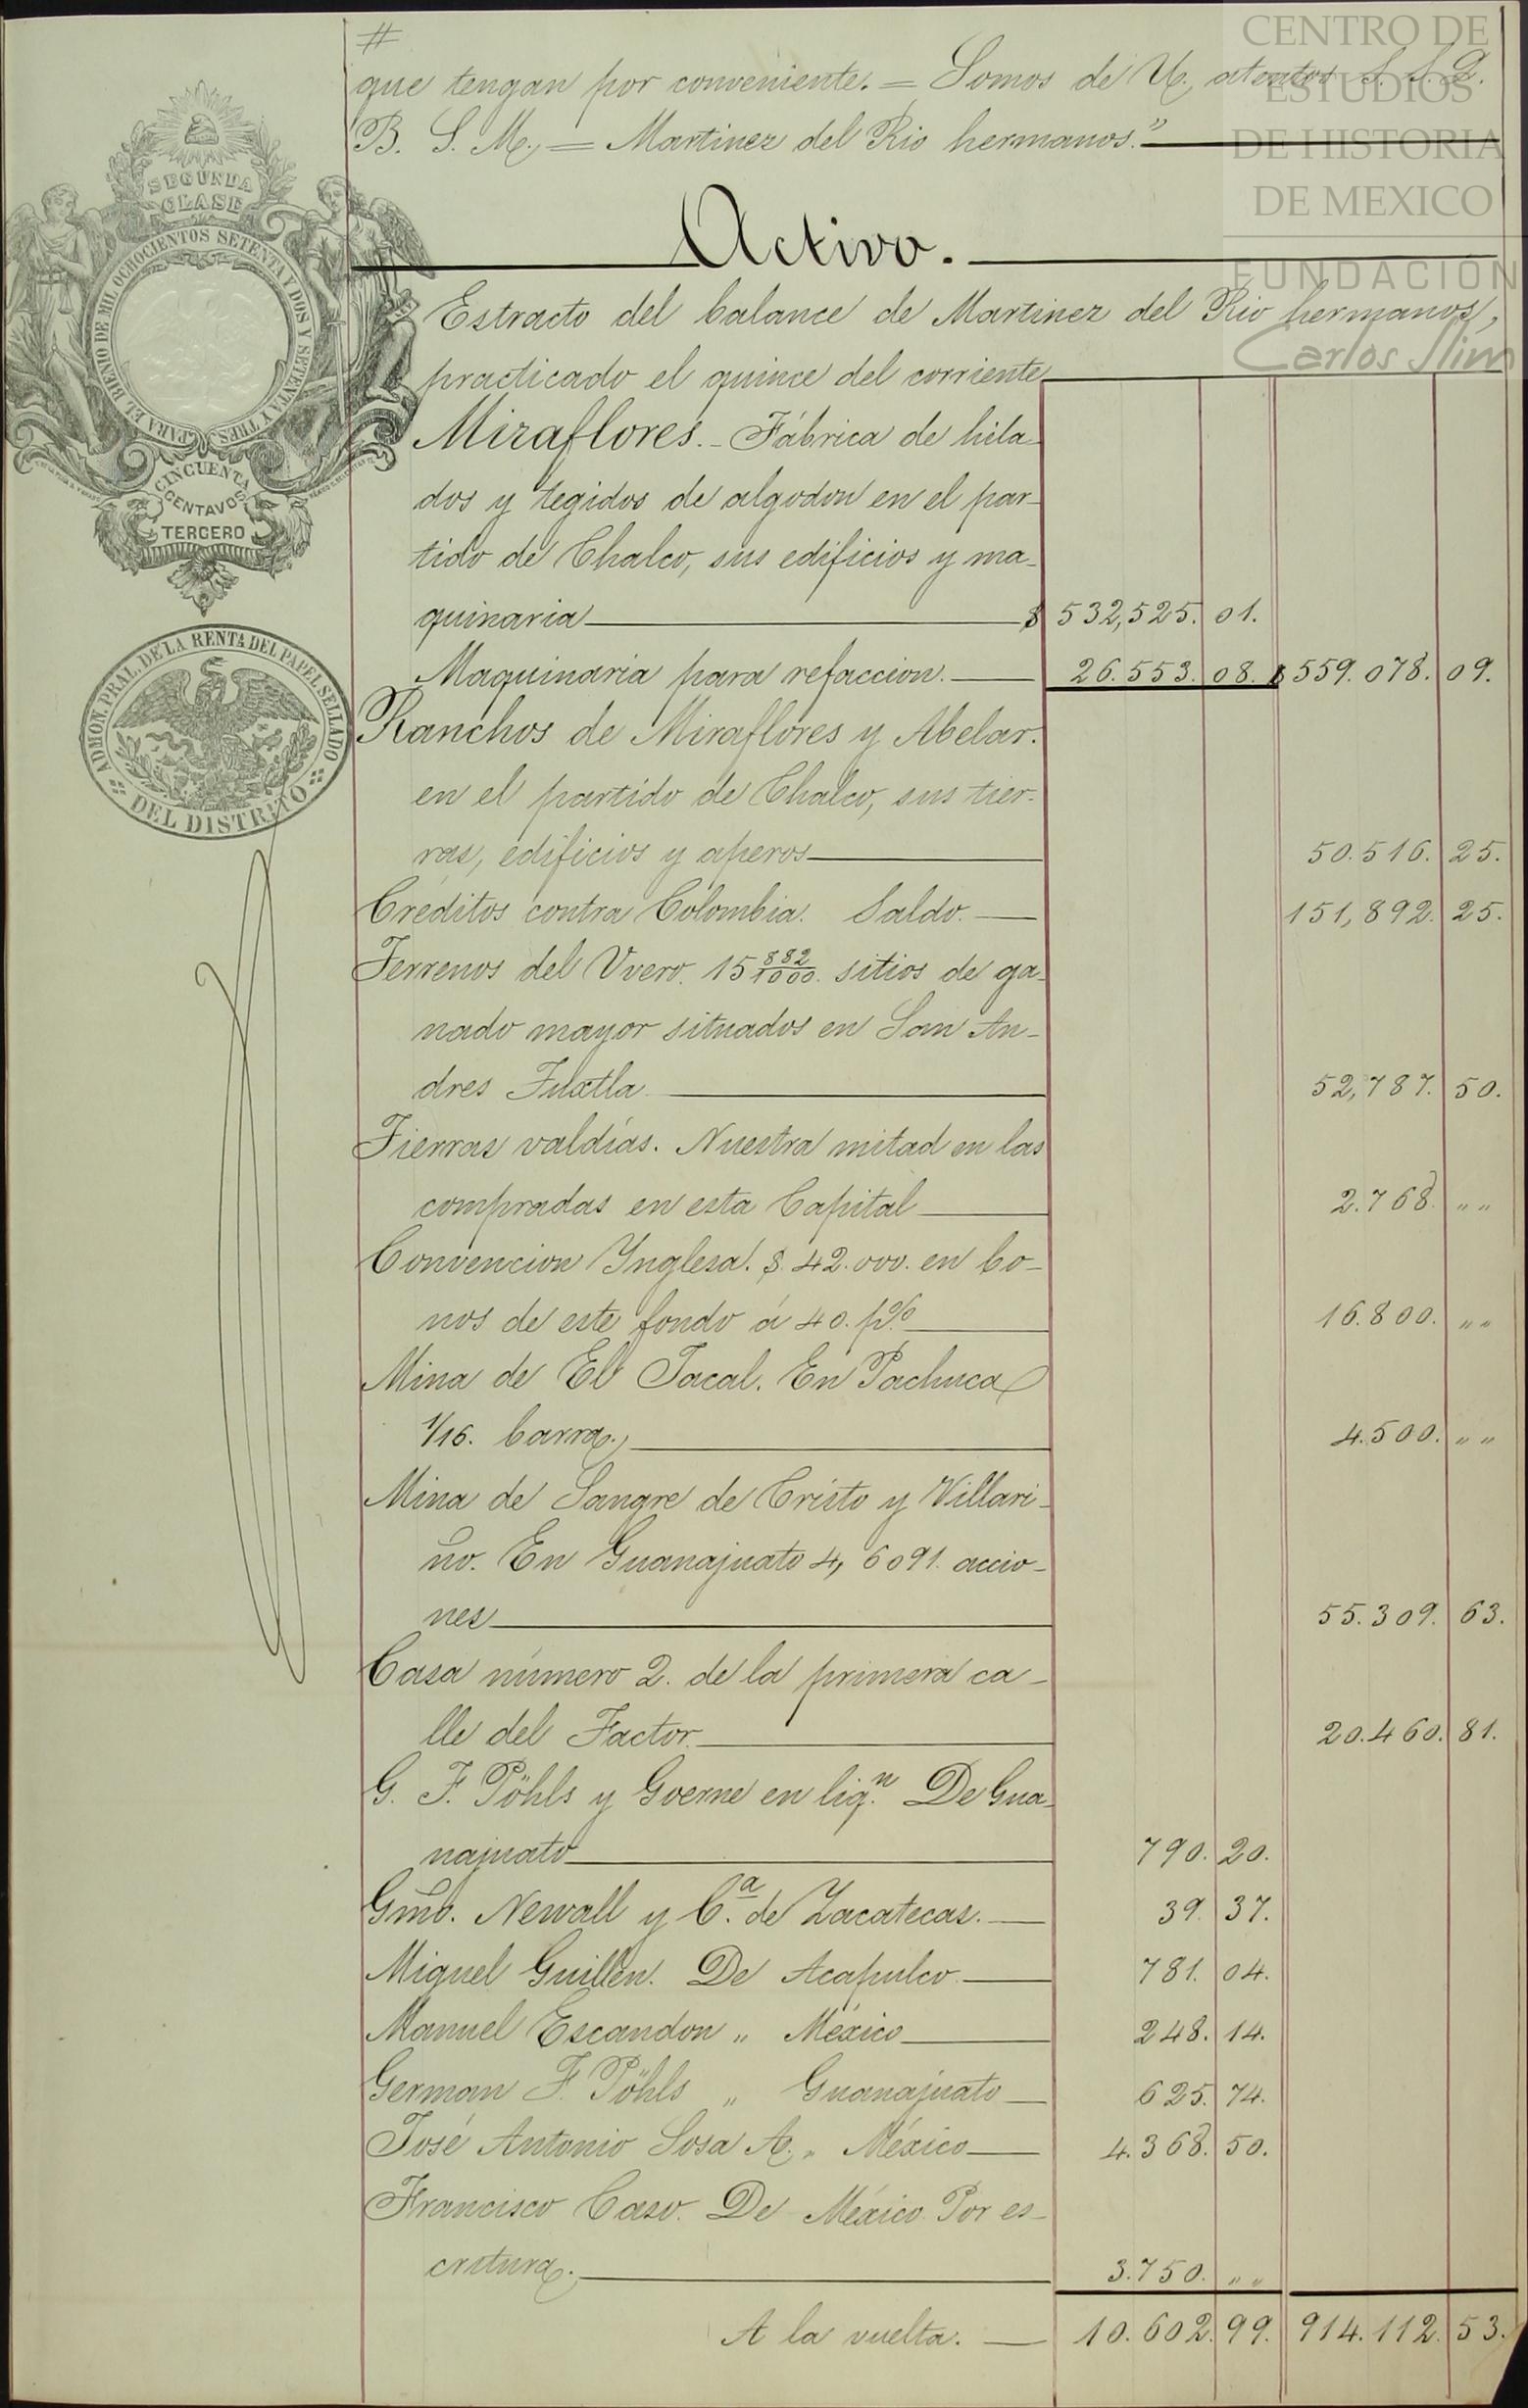 CENTRO DE
ESTUDIOS
DE HISTORIA
DE MEXICO
FUNDACIÓN
Carlos Slim
SEGUNDA
CLASE
PARA EL BIENIO DE MIL OCHOCIENTOS SETENTA Y DOS Y SETENTA Y TRES
CINCUENTA
CENTAVOS
TERCERO
ADMON. PRAL. DE LA RENTA DEL PAPEL SELLADO
DEL DISTRITO
#
que tengan por conveniente. = Somos de U. atentos S. S. Q.
B. S. M. = Martinez del Rio hermanos."
Activo.
Estracto del balance de Martinez del Rio hermanos,
practicado el quince del corriente
Miraflores. - Fábrica de hila-
dos y tegidos de algodon en el par-
tido de Chalco, sus edificios y ma-
quinaria $ 532,525. 01.
Maquinaria para refaccion. 26.553. 08. $ 559.078. 09.
Ranchos de Miraflores y Abelar.
en el partido de Chalco, sus tier-
ras, edificios y aperos 50.516. 25.
Créditos contra Colombia. Saldo. 151,892. 25.
Terrenos del Uvero. 15 882/1000. sitios de ga-
nado mayor situados en San An-
dres Tuxtla 52,787. 50.
Tierras valdías. Nuestra mitad en las
compradas en esta Capital 2.768. " "
Convencion Ynglesa. $ 42.000. en bo-
nos de este fondo á 40. p% 16.800. " "
Mina de El Jacal. En Pachuca
1/16. barra. 4.500. " "
Mina de Sangre de Cristo y Villari-
ño. En Guanajuato 4, 6091. accio-
nes 55.309. 63.
Casa número 2. de la primera ca-
lle del Factor. 20.460. 81.
G. F. Pöhls y Goerne en liq.n De Gua-
najuato 790. 20.
Gmo. Newall y C.a de Zacatecas. 39. 37.
Miguel Guillen. De Acapulco. 781. 04.
Manuel Escandon " México 248. 14.
German F. Pöhls " Guanajuato 625. 74.
José Antonio Sosa A. " México 4.368. 50.
Francisco Caso. De México Por es-
critura. 3.750. " "
A la vuelta. 10.602. 99. 914.112. 53.